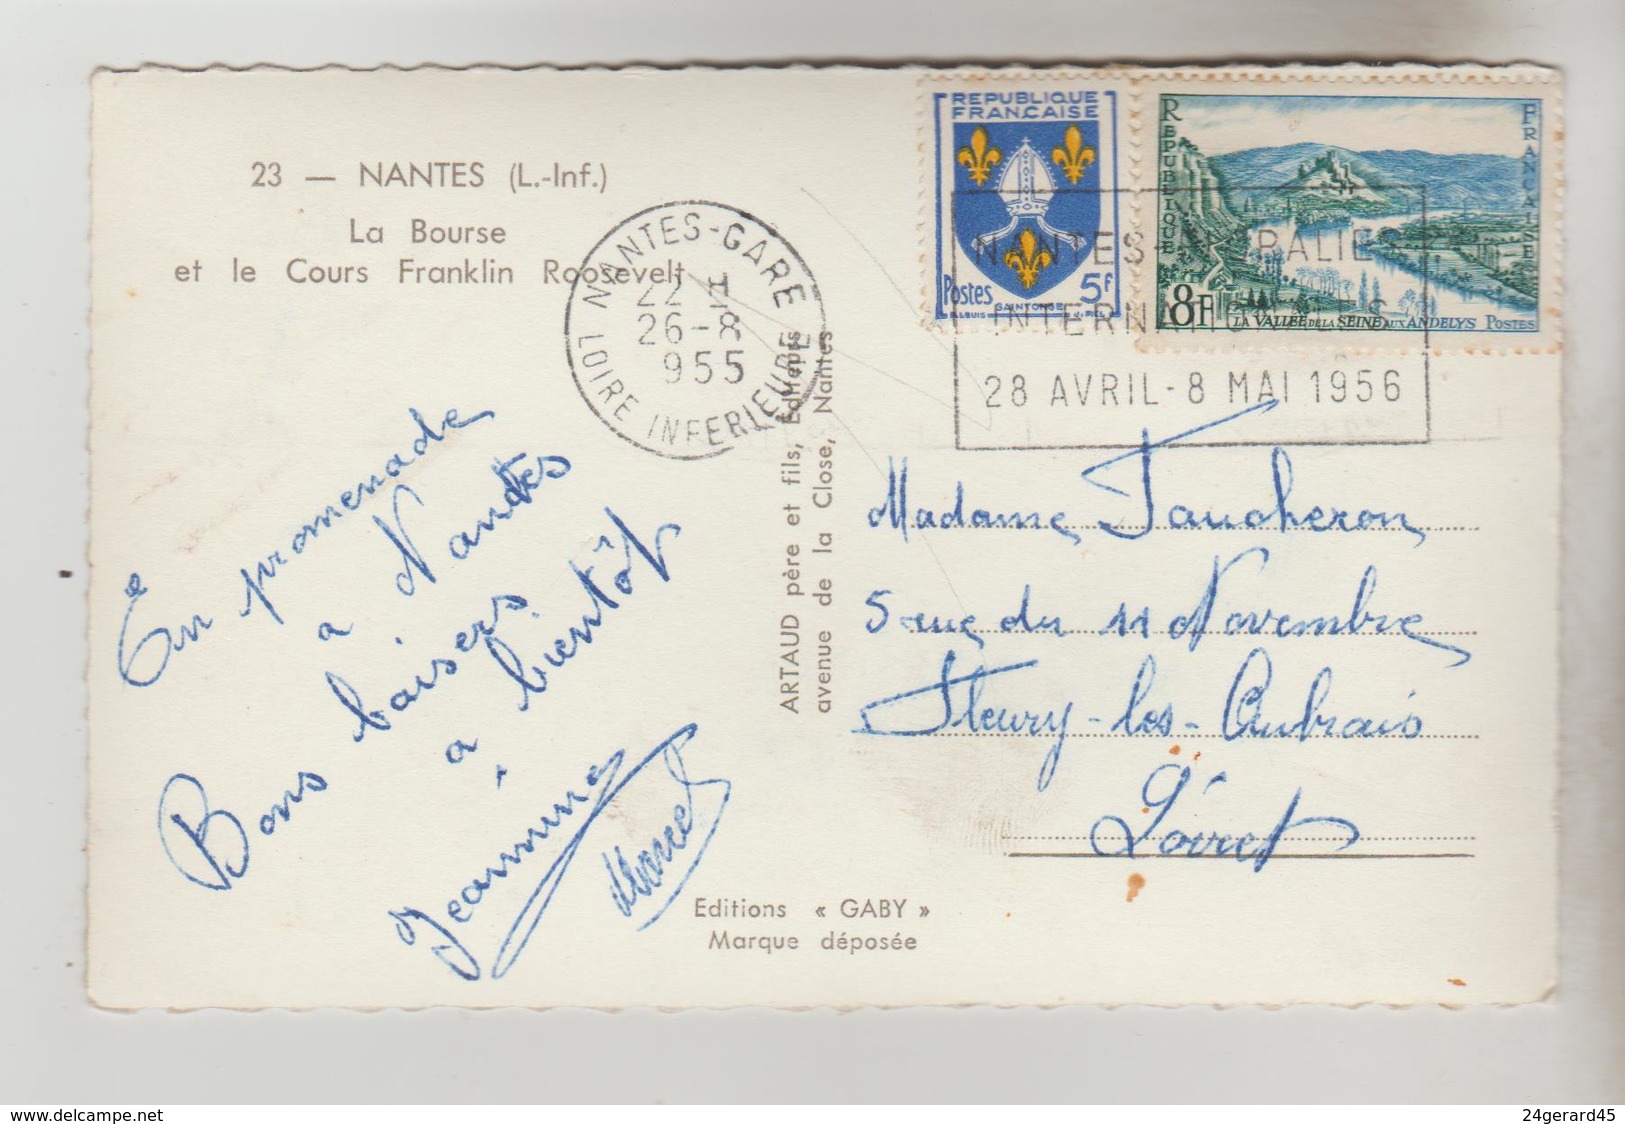 23 — NANTES (L.-Inf.)
La Bourse
et le Cours Franklin Roosevelt
NANTES-GARE
22 H
26-8
955
LOIRE INFERIEURE
REPUBLIQUE
FRANÇAISE
Postes 5F
SAINTONGE
REPUBLIQUE FRANÇAISE
8F LA VALLÉE DE LA SEINE AUX ANDELYS POSTES
NANTES
INTERN
28 AVRIL - 8 MAI 1956
ARTAUD père et fils, Editeurs
avenue de la Close, Nantes
En promenade
à Nantes
Bons baisers
à bientôt
Jeannine
Marcel
Madame Faucheron
5 rue du 11 Novembre
Fleury-les-Aubrais
Loiret
Editions « GABY »
Marque déposée
www.delcampe.net
24gerard45